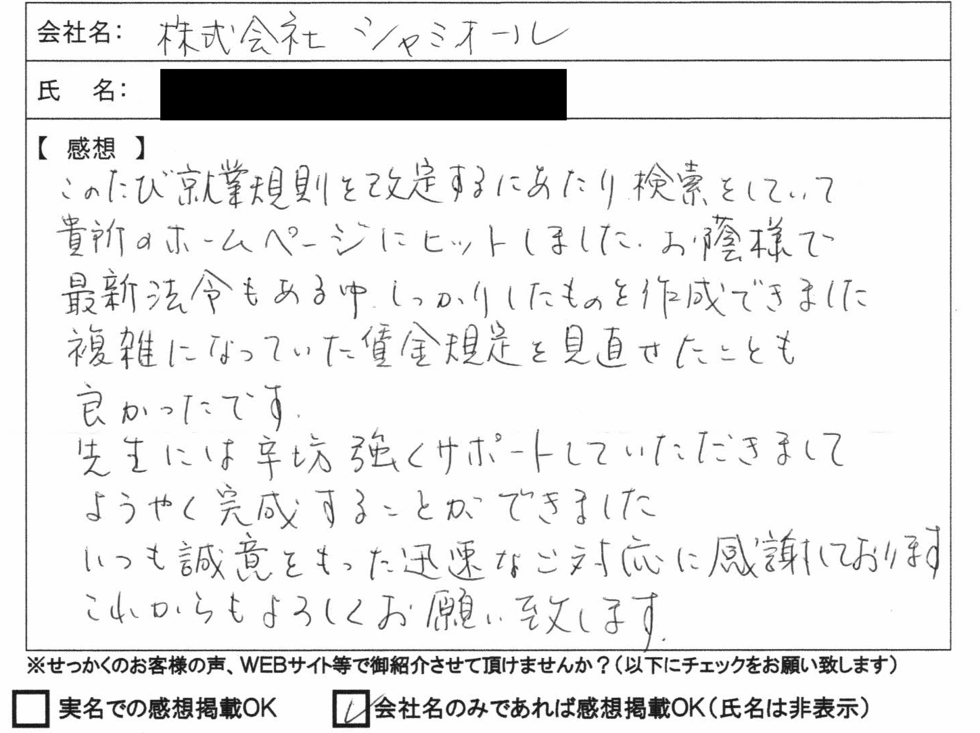 会社名： 株式会社 シャミオール
氏 名：
【 感想 】
このたび就業規則を改定するにあたり検索をしていて
貴所のホームページにヒットしました. お蔭様で
最新法令もある中、しっかりしたものを作成できました
複雑になっていた賃金規定を見直せたことも
良かったです.
先生には辛坊強くサポートしていただきまして
ようやく完成することができました
いつも誠意をもった迅速なご対応に感謝しております
これからもよろしくお願い致します.
※せっかくのお客様の声、WEBサイト等で御紹介させて頂けませんか？（以下にチェックをお願い致します）
実名での感想掲載OK 会社名のみであれば感想掲載OK（氏名は非表示）